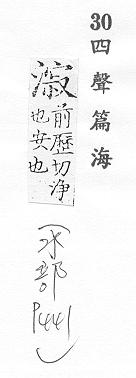 30 四聲篇海
前歷切浄
也安也
(水部 P441)